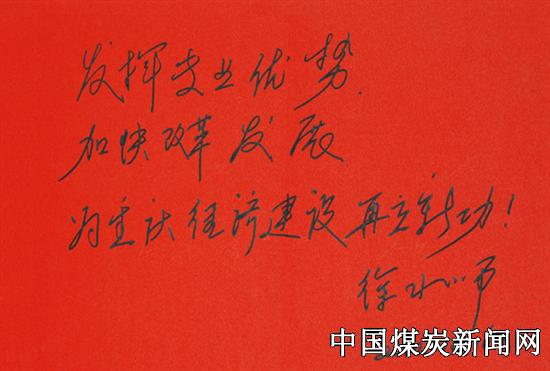 发挥专业优势
加快改革发展
为重庆经济建设再立新功！
徐水师
中国煤炭新闻网